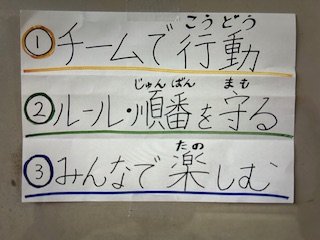 こうどう
①チームで行動
じゅんばん まも
②ルール・順番を守る
たの
③みんなで楽しむ